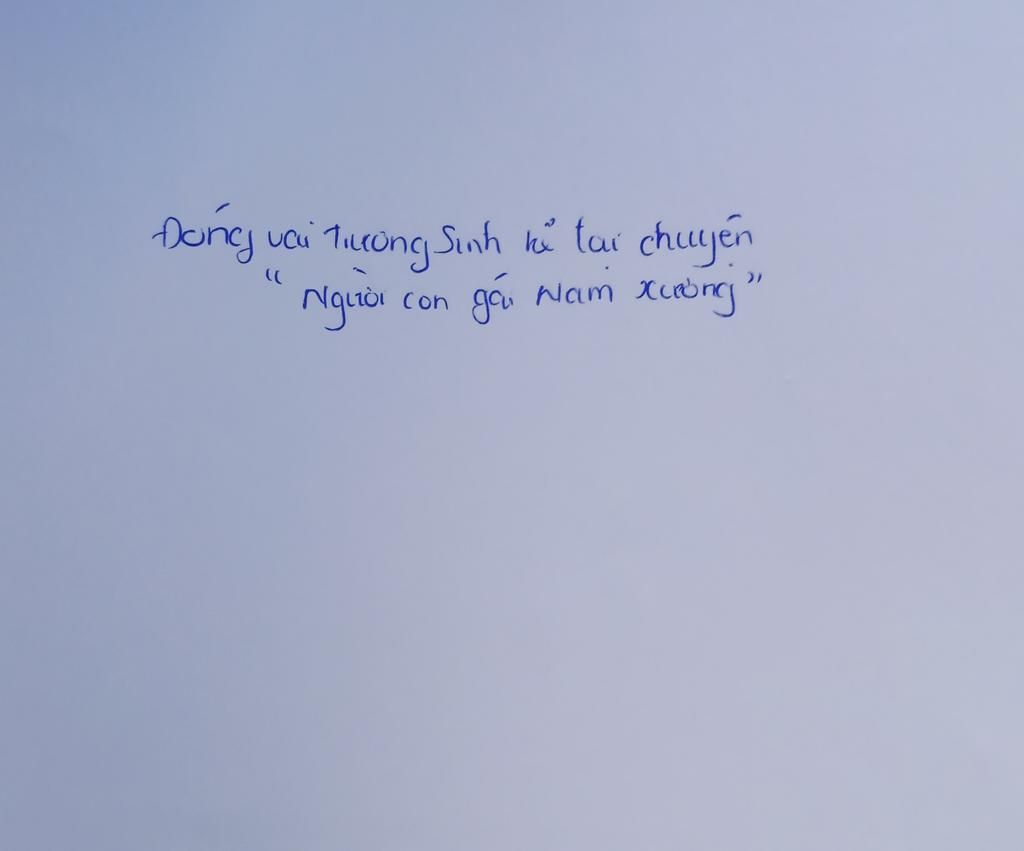 Đóng vai Trương Sinh kể lại chuyện
"Người con gái Nam Xương"